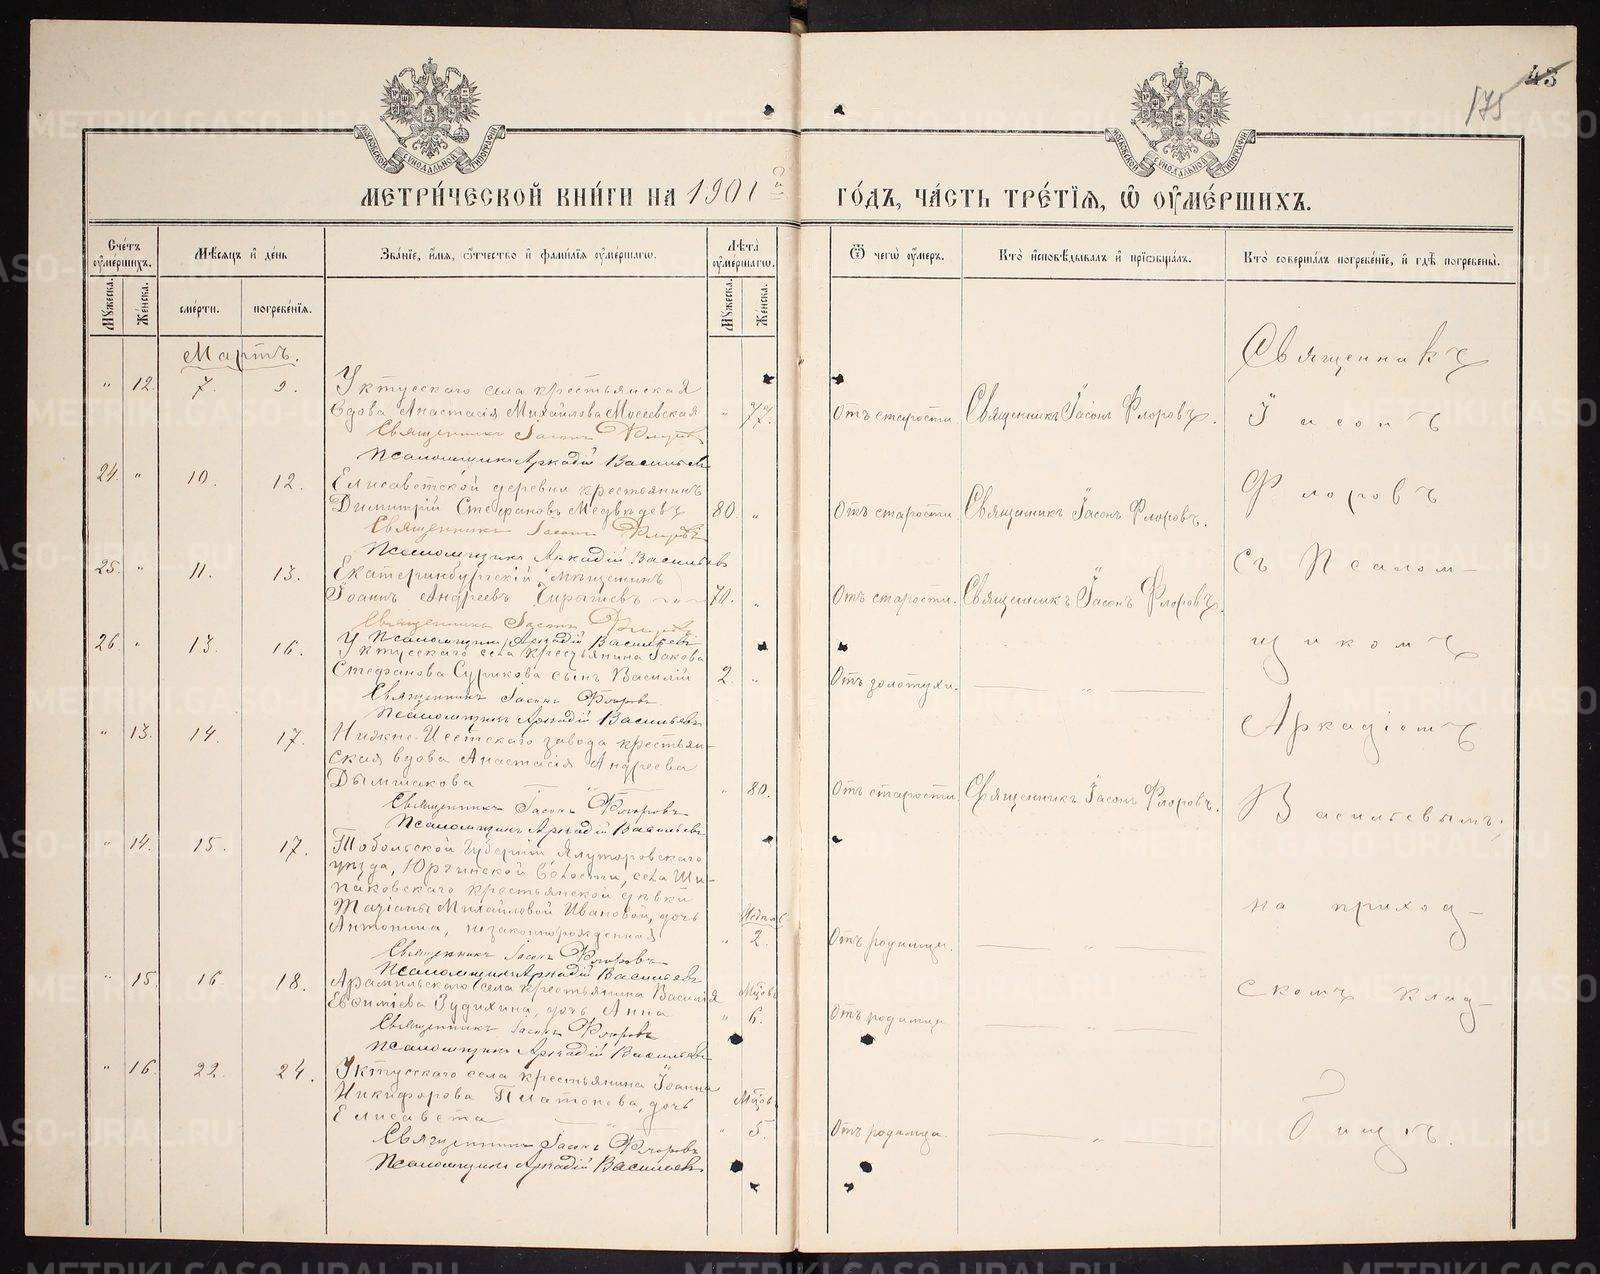 43
175
МОСКОВСКОЙ СѴНОДАЛЬНОЙ ТИПОГРАФІИ
МОСКОВСКОЙ СѴНОДАЛЬНОЙ ТИПОГРАФІИ
МЕТРИ́ЧЕСКОЙ КНИ́ГИ НА 1901 ГО́ДЪ, ЧА́СТЬ ТРЕ́ТІѦ, Ѡ ОУ҆МЕ́РШИХЪ.
Счетъ оумершихъ.
Мѣсяцъ и день
Званіе, имя, отчество и фамилія оумершагѡ.
Лѣта оумершагѡ.
Ѿ чегѡ оумеръ.
Кто исповѣдывалъ и пріѡбщалъ.
Кто совершалъ погребеніе, и гдѣ погребены.
Мꙋжеска. Женска.
смерти. погребенія.
Мꙋжеска. Женска.
Мартъ.
" 12. 7. 9. Уктусскаго села крестьянская
вдова Анастасія Михайлова Мосеевская " 77. Отъ старости Священникъ Іасонъ Флоровъ.
Священникъ Іасонъ Флоровъ
Псаломщикъ Аркадій Васильевъ
24. " 10. 12. Елисаветской деревни крестьянинъ
Димитрій Стефановъ Медвѣдевъ 80. " Отъ старости Священникъ Іасонъ Флоровъ.
Священникъ Іасонъ Флоровъ
Псаломщикъ Аркадій Васильевъ
25. " 11. 13. Екатеринбургскій мѣщанинъ
Іоаннъ Андреевъ 70. " Отъ старости. Священникъ Іасонъ Флоровъ.
Священникъ Іасонъ Флоровъ
Псаломщикъ Аркадій Васильевъ
26. " 13. 16. Уктусскаго села крестьянина Іакова
Стефанова Сурикова сынъ Василій 2. " Отъ золотухи. "
Священникъ Іасонъ Флоровъ
Псаломщикъ Аркадій Васильевъ
" 13. 14. 17. Нижне-Исетскаго завода крестьян-
ская вдова Анастасія Андреева
Дымшакова " 80. Отъ старости Священникъ Іасонъ Флоровъ.
Священникъ Іасонъ Флоровъ
Псаломщикъ Аркадій Васильевъ
" 14. 15. 17. Тобольской губерніи, Ялуторовскаго
уѣзда, Юргинской волости, села Ши-
паковскаго крестьянской дѣвки
Татіаны Михайловой Ивановой, дочь
Антонина, незаконнорожденная " 2. Отъ родимца. "
Священникъ Іасонъ Флоровъ
Псаломщикъ Аркадій Васильевъ
" 15. 16. 18. Арамильскаго села крестьянина Василія
Евѳиміева Зудихина, дочь Анна " 6. Отъ родимца "
Священникъ Іасонъ Флоровъ
Псаломщикъ Аркадій Васильевъ
" 16. 22. 24. Уктусскаго села крестьянина Іоанна
Никифорова Платонова, дочь
Елисавета " 5. Отъ родимца. "
Священникъ Іасонъ Флоровъ
Псаломщикъ Аркадій Васильевъ
Священникъ
Іасонъ
Флоровъ
съ Псалом-
щикомъ
Аркадіемъ
Васильевымъ,
на приход-
скомъ клад-
бищѣ.
METRIKI.GASO-URAL.RU